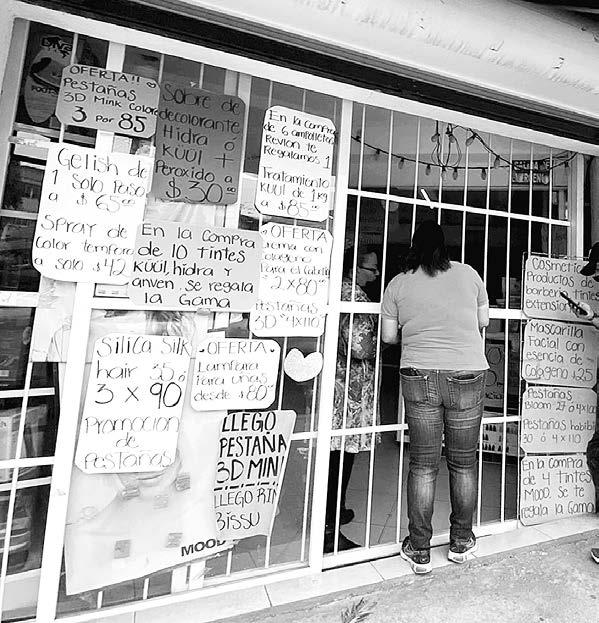 OFERTA!!
Pestañas
3D Mink colore
3 por 85
Sobre de
decolorante
Hidra ó
KÜÜL +
Peroxido
a $30.00
En la Compra
de 6 ampolletas
Revlon te
Regalamos 1
Tratamiento
KÜÜL de 1kg
a $85
Gelish de
1 Solo Paso
a $65
Spray de
Color tempora
a solo $42
En la Compra
de 10 tintes
Küül, hidra y
anven. se regala
la Gama
OFERTA
crema con
colageno
Para el Cabello
2 x 80
Pestañas
3D 4x110
Silica Silk
hair 35ó
3 x 90
Promocion
de
Pestañas
OFERTA
Lampara
Para uñas
desde $80
LLEGO
PESTAÑA
3D MINK
LLEGO RIN
BISSU
MOOD
Cosmetic
Productos de
barberia tintes
extension
Mascarilla
Facial con
esencia de
Colageno $25
Pestañas
Bloom 27 ó 4x100
Pestañas habibi
30 ó 4x110
En la Compra
de 4 tintes
MOOD. Se te
regala la Gama